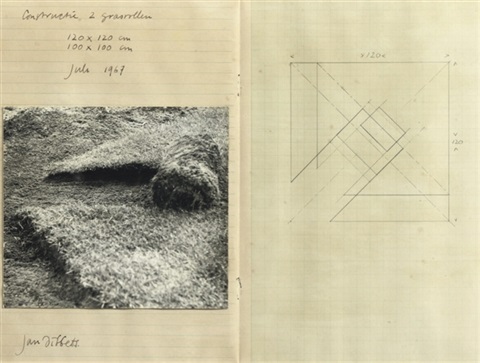 Constructie, 2 grasrollen
120 x 120 cm
100 x 100 cm
Juli 1967
Jan Dibbets
120